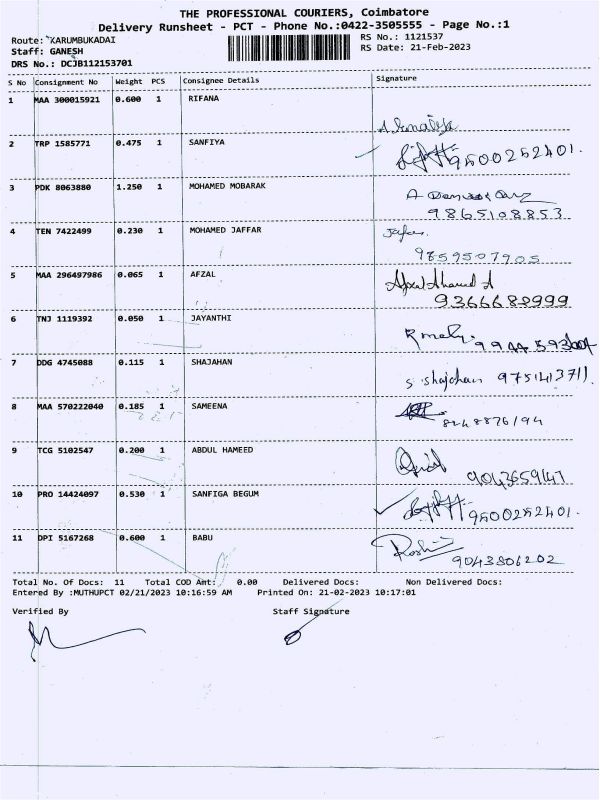 THE PROFESSIONAL COURIERS, Coimbatore
Delivery Runsheet - PCT - Phone No.:0422-3505555 - Page No.:1
Route: KARUMBUKADAI
RS No.: 1121537
Staff: GANESH
RS Date: 21-Feb-2023
DRS No.: DCJB112153701
S No Consignment No Weight PCS Consignee Details Signature
1 MAA 300015921 0.600 1 RIFANA
2 TRP 1585771 0.475 1 SANFIYA 9500252401.
3 PDK 8063880 1.250 1 MOHAMED MOBARAK
9865108853
4 TEN 7422499 0.230 1 MOHAMED JAFFAR
9859507905
5 MAA 296497986 0.065 1 AFZAL Afzal Ahamed A
9366682999
6 TNJ 1119392 0.050 1 JAYANTHI
7 DDG 4745088 0.115 1 SHAJAHAN S. Shajahan 9751413711.
8 MAA 570222040 0.185 1 SAMEENA
8248876194
9 TCG 5102547 0.200 1 ABDUL HAMEED
9043659147
10 PRO 14424097 0.530 1 SANFIGA BEGUM 9500252401.
11 DPI 5167268 0.600 1 BABU
9043806202
Total No. Of Docs: 11 Total COD Amt: 0.00 Delivered Docs: Non Delivered Docs:
Entered By :MUTHUPCT 02/21/2023 10:16:59 AM Printed On: 21-02-2023 10:17:01
Verified By Staff Signature